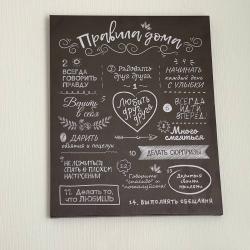 Правила дома
2
ВСЕГДА
ГОВОРИТЬ
ПРАВДУ
3 Радовать
друг друга
4
НАЧИНАТЬ
КАЖДЫЙ ДЕНЬ
С УЛЫБКИ
1
Любить
друг
друга
Верить
в себя
ВСЕГДА
ИДТИ
ВПЕРЁД
ДАРИТЬ
объятия и поцелуи
Много
смеяться
НЕ ЛОЖИТЬСЯ
СПАТЬ В ПЛОХОМ
НАСТРОЕНИИ
10 ДЕЛАТЬ СЮРПРИЗЫ
11. Делать то,
что ЛЮБИШЬ
12
Говорить
"спасибо" и
"пожалуйста"
Делиться
своими
мыслями
14. ВЫПОЛНЯТЬ ОБЕЩАНИЯ